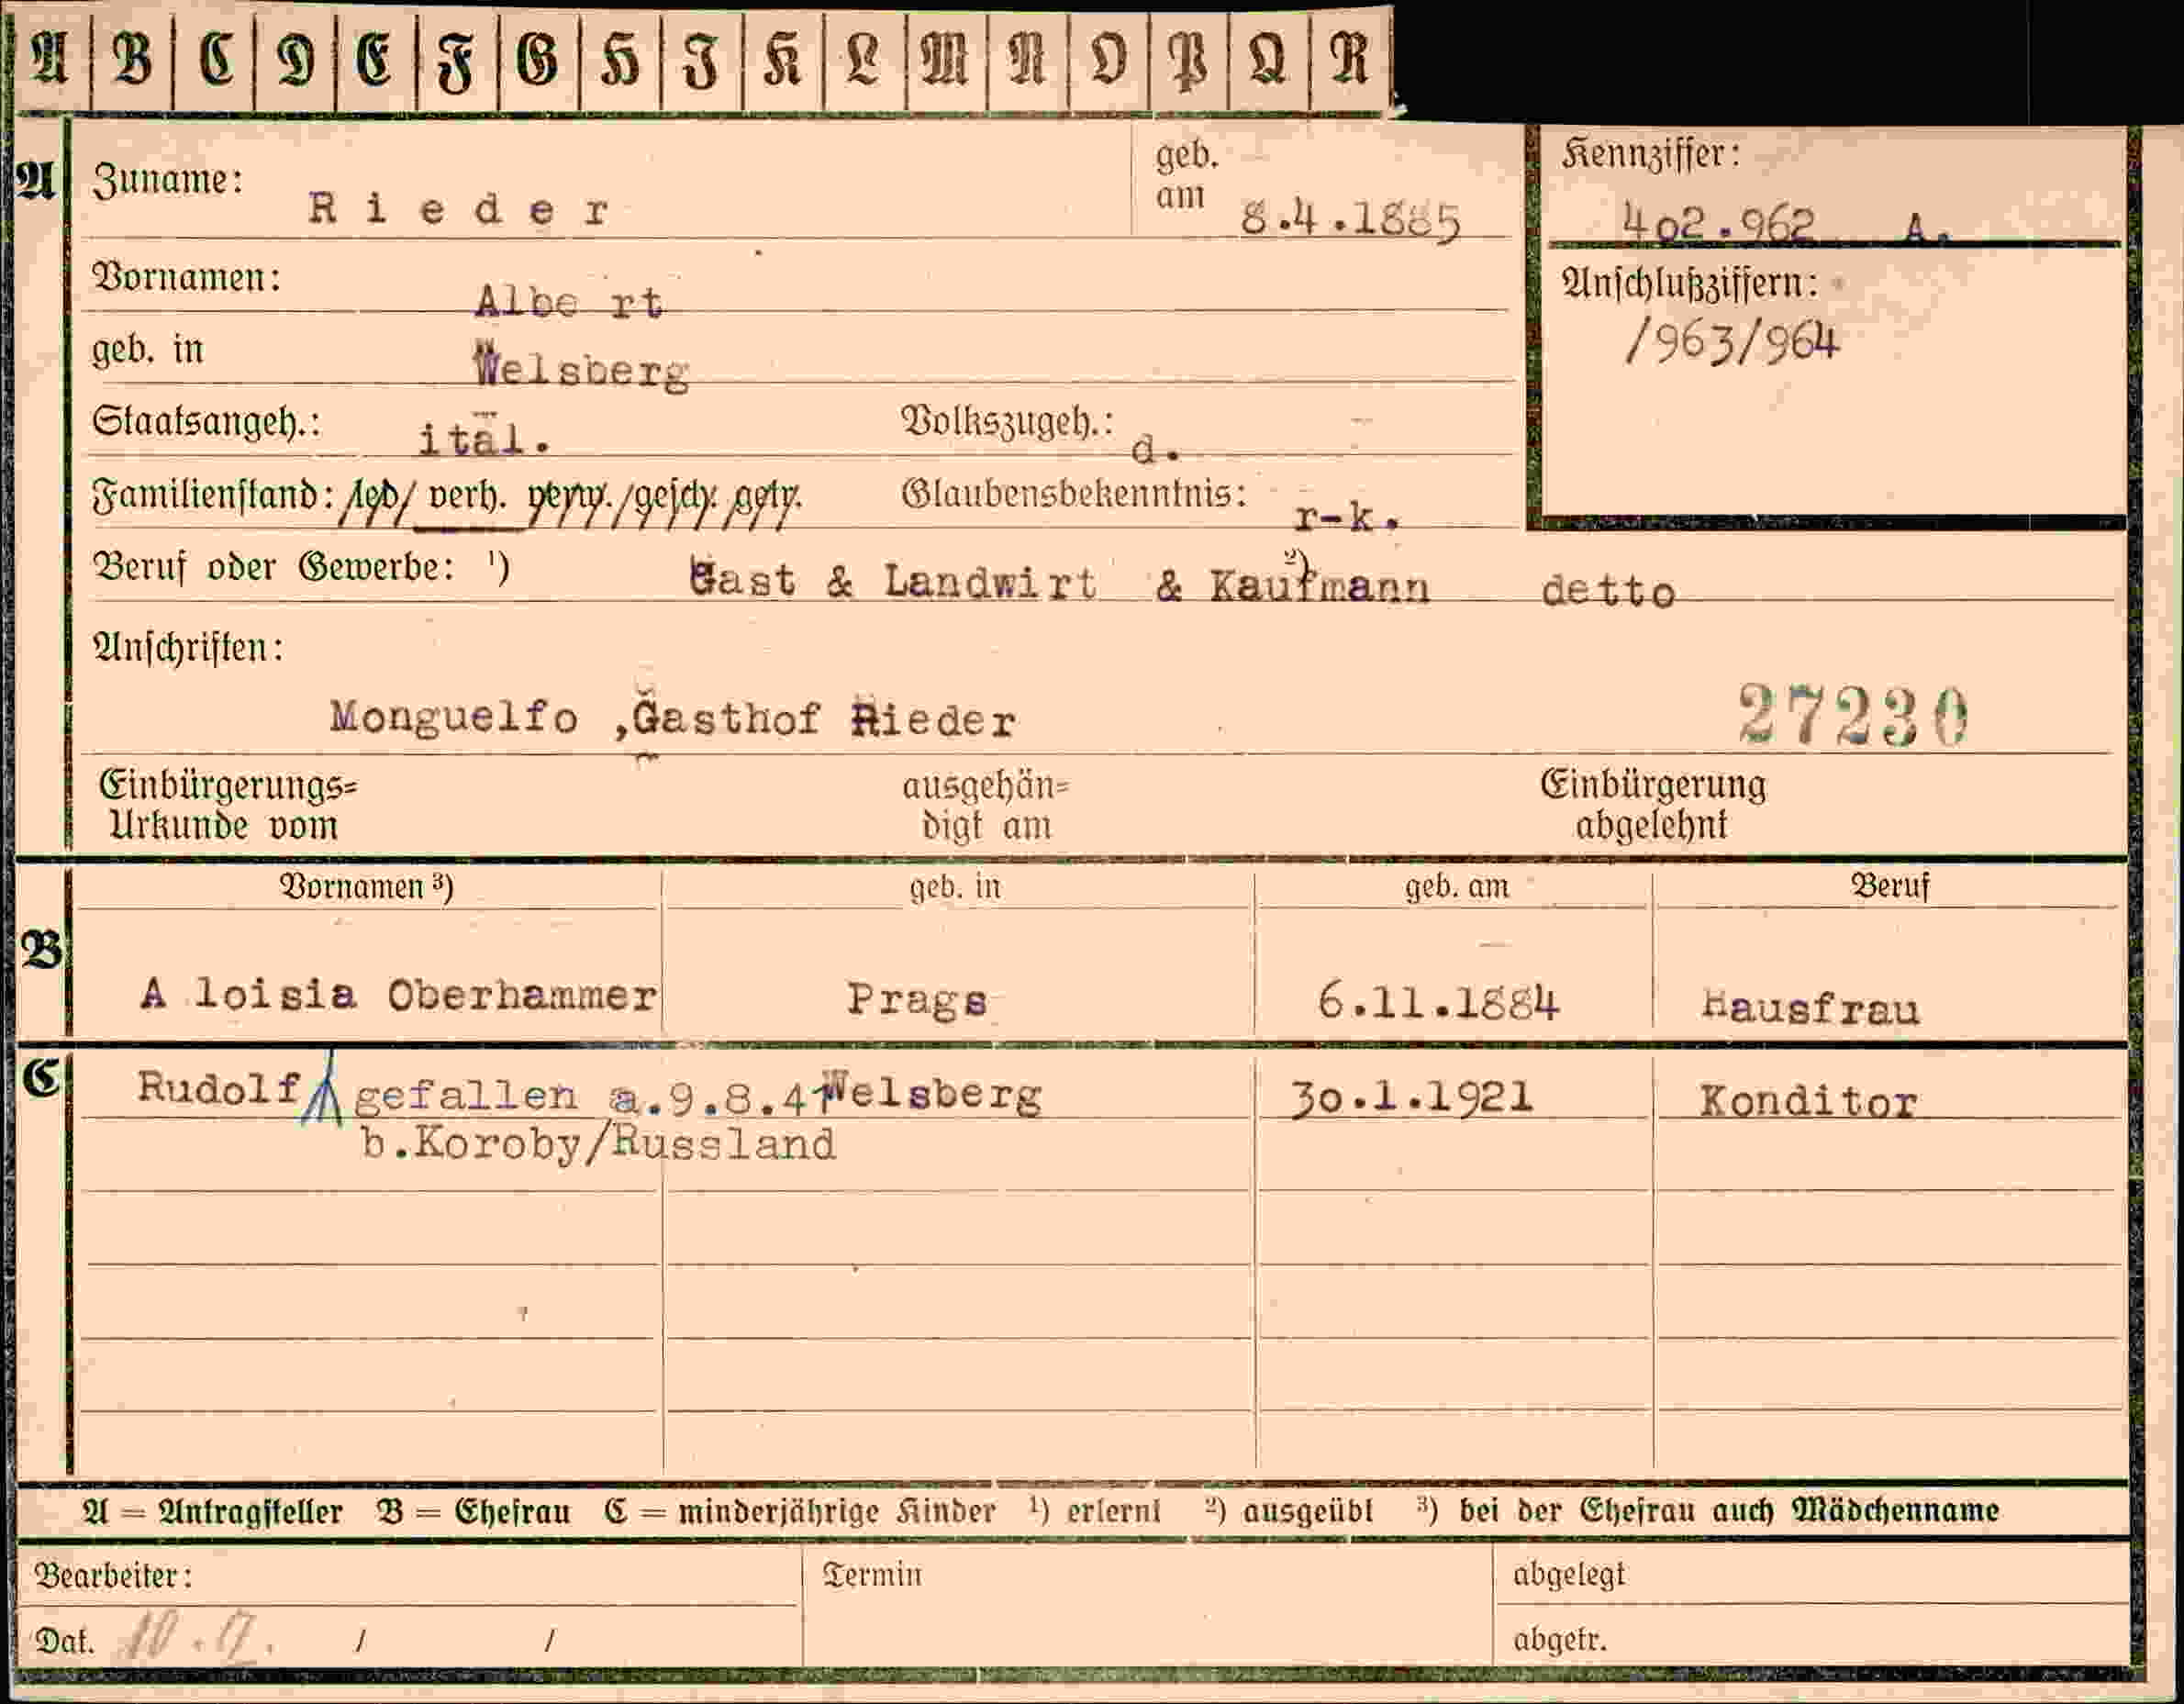 A B C D E F G H I K L M N O P Q R
A Zuname: Rieder geb. am 8.4.1885 Kennziffer: 402.962 A.
Vornamen: Albe rt Anschlußziffern: /963/964
geb. in Welsberg
Staatsangeh.: ital. Volkszugeh.: d.
Familienstand: led/ verh. verw./gesch. getr. Glaubensbekenntnis: r-k.
Beruf oder Gewerbe: ¹) Gast & Landwirt & Kaufmann ²) detto
Anschriften:
Monguelfo ,Gasthof Rieder 27230
Einbürgerungs= ausgehän= Einbürgerung
Urkunde vom digt am abgelehnt
Vornamen ³) geb. in geb. am Beruf
B A loisia Oberhammer Prags 6.11.1884 Hausfrau
C Rudolf gefallen a.9.8.41 Welsberg 30.1.1921 Konditor
b.Koroby/Russland
A = Antragsteller B = Ehefrau C = minderjährige Kinder ¹) erlernt ²) ausgeübt ³) bei der Ehefrau auch Mädchenname
Bearbeiter: Termin abgelegt
Dat. / / abgetr.